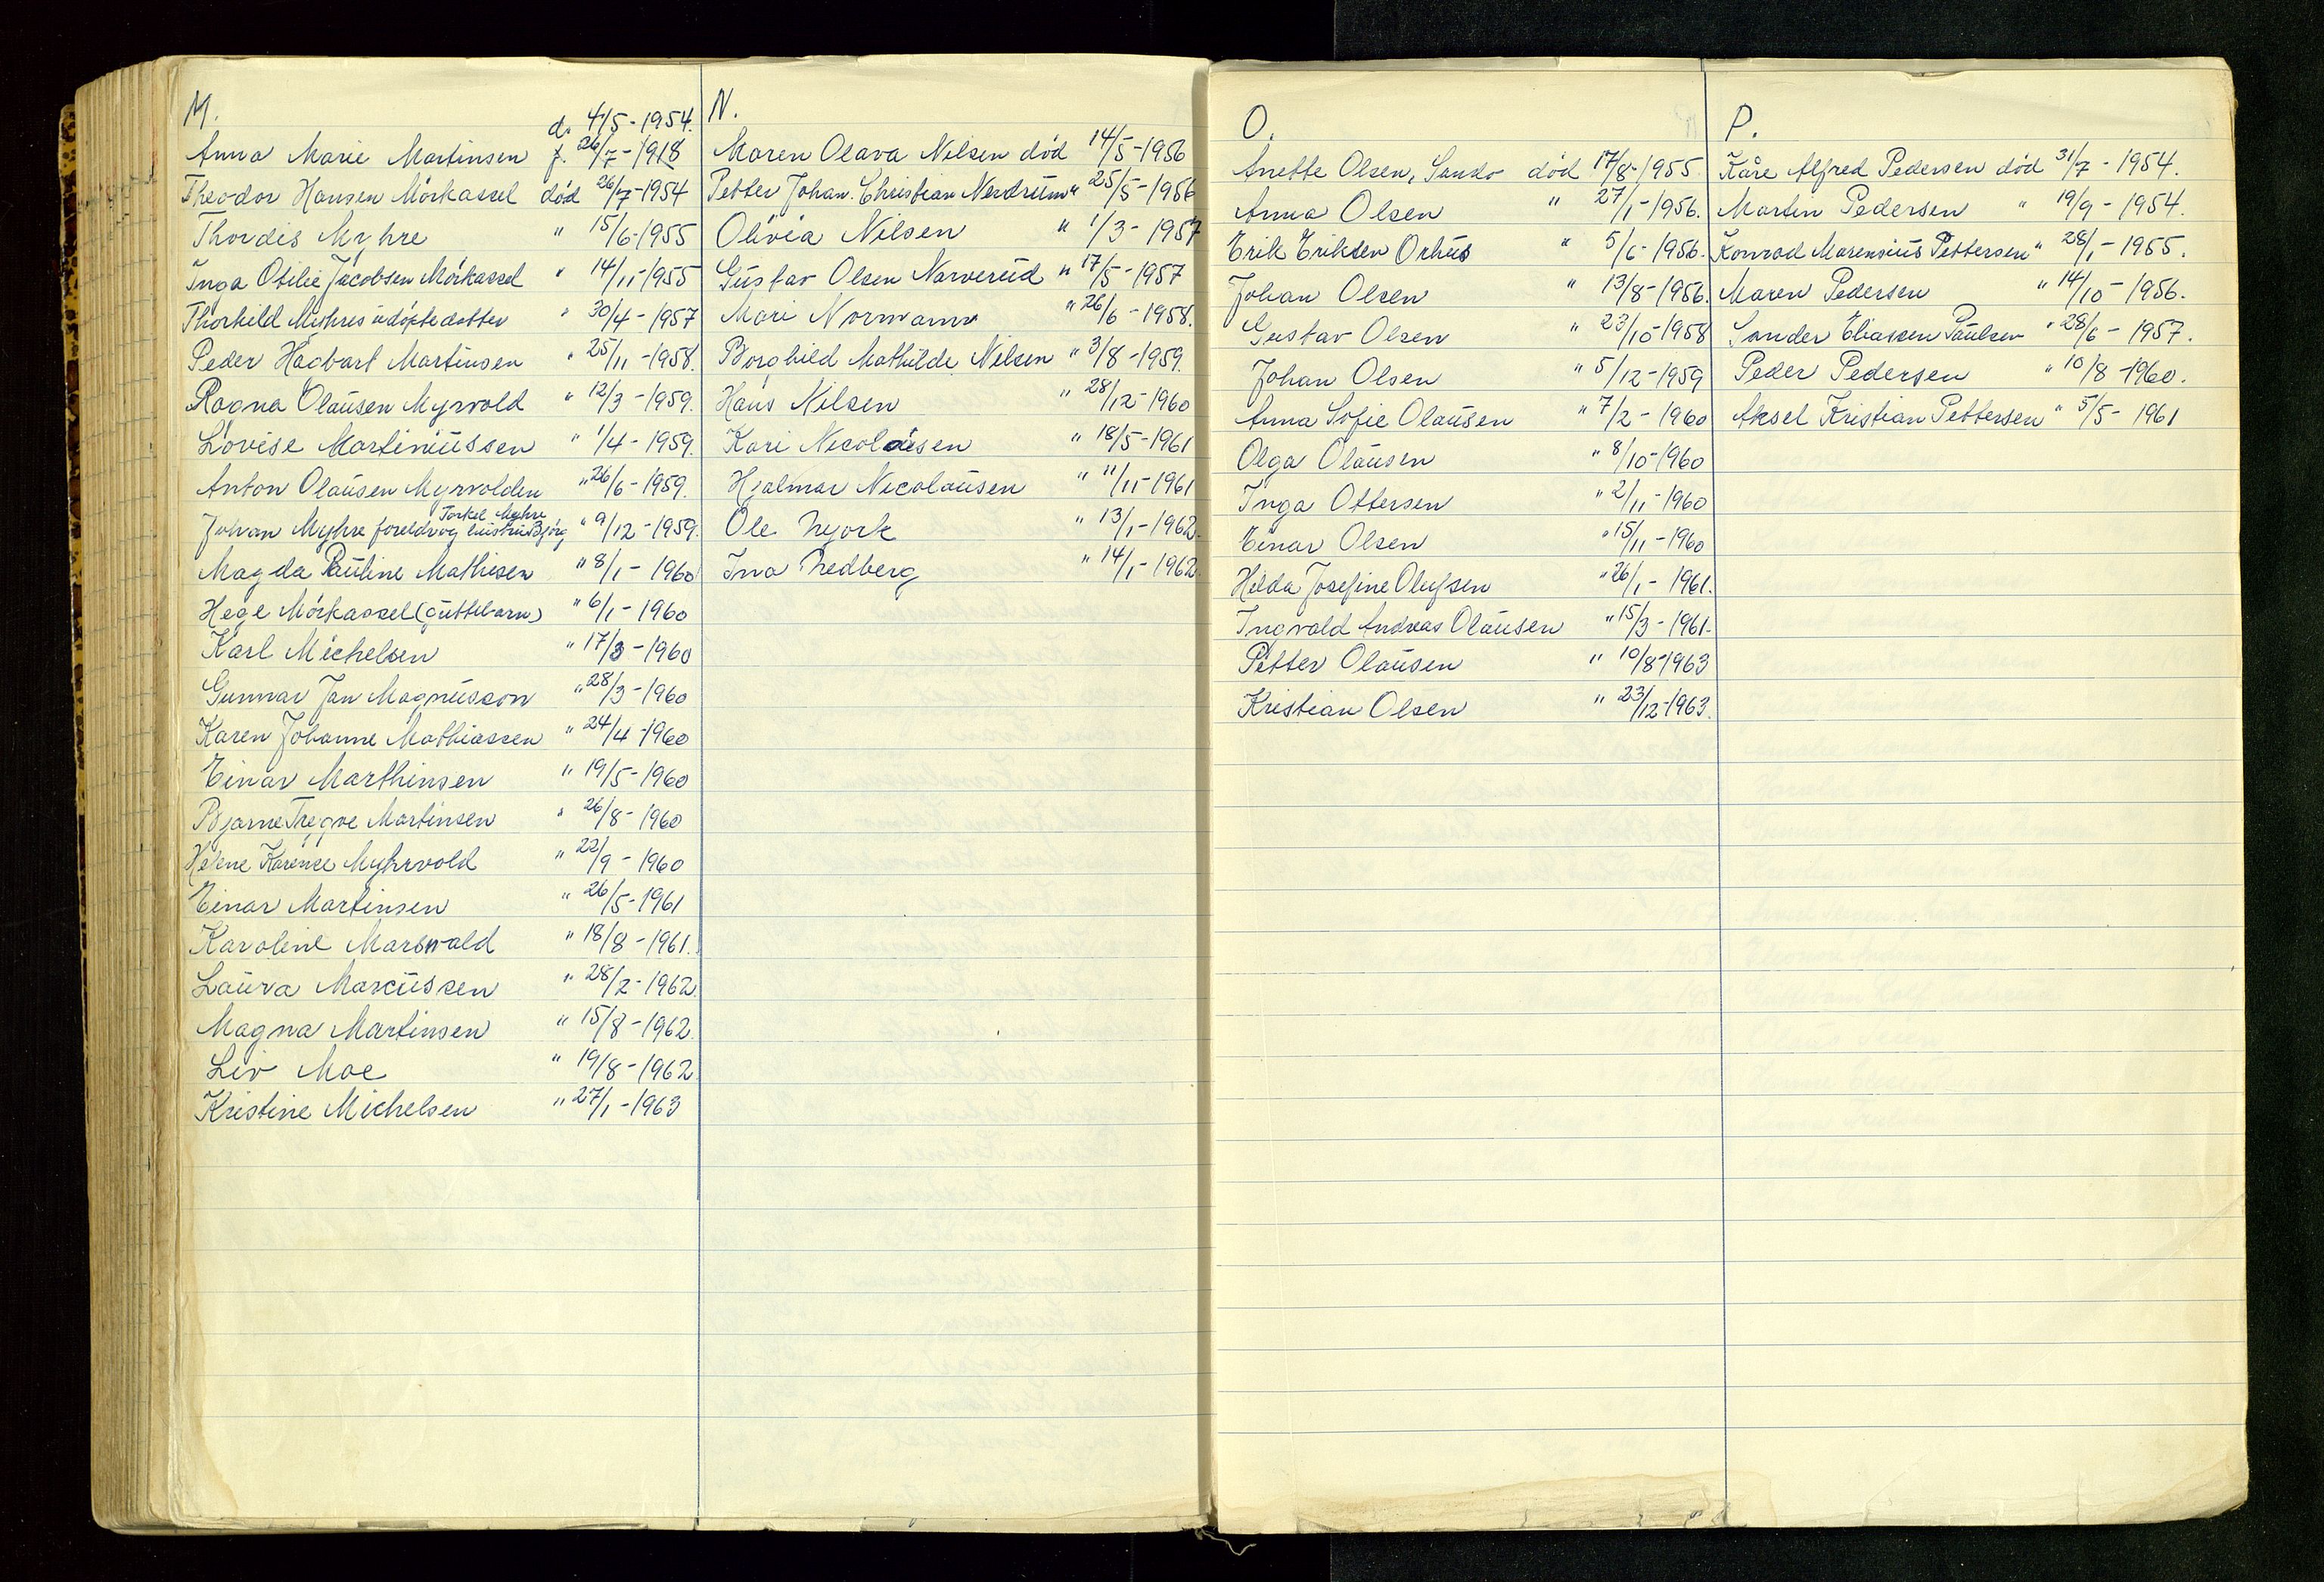 M.
d. 4/5-1954.
Anna Marie Martinsen f. 26/7-1918
Theodor Hansen Mörkassel död 26/7-1954
Thordis Myhre " 15/6-1955
Inga Otilie Jacobsen Mörkassel " 14/11-1955
Thorhild Myhres udöpte datter " 30/4-1957
Peder Hagbart Martinsen " 25/11-1958.
Ragna Olausen Myrvold " 12/3-1959.
Lovise Martiniussen " 1/4-1959.
Anton Olausen Myrvolden " 26/6-1959.
Torkel Myhre
Johan Myhre foreldr og hustru Bjørg " 9/12-1959.
Magda Pauline Mathisen " 8/1-1960
Hege Mörkassel (guttebarn) " 6/1-1960
Karl Michelsen " 17/3-1960
Gunnar Jan Magnusson " 28/3-1960
Karen Johanne Mathiassen " 24/4-1960
Einar Marthinsen " 19/5-1960
Bjarne Trygve Martinsen " 26/8-1960
Helene Karense Myhrvold " 22/9-1960
Einar Martinsen " 26/5-1961
Karoline Marswald " 18/8-1961.
Laura Marcussen " 28/2-1962.
Magna Martinsen " 15/8-1962
Liv Moe " 19/8-1962
Kristine Michelsen " 27/1-1963
N.
Maren Olava Nilsen död 14/5-1956
Petter Johan Christian Nerdrum " 25/5-1956
Olivia Nilsen " 1/3-1957
Gustav Olsen Narverud " 17/5-1957
Mari Normann " 26/6-1958.
Borghild Mathilde Nilsen " 3/8-1959.
Hans Nilsen " 28/12-1960
Kari Nicolaisen " 18/5-1961
Hjalmar Nicolausen " 11/11-1961
Ole Nyork " 13/1-1962.
Ina Nedberg " 14/1-1962.
O.
Anette Olsen, Sando död 17/8-1955.
Anna Olsen " 27/1-1956.
Erik Eriksen Orhus " 5/6-1956.
Johan Olsen " 13/8-1956.
Gustav Olsen " 23/10-1958
Johan Olsen " 5/12-1959
Anna Sofie Olausen " 7/2-1960
Olga Olausen " 8/10-1960
Inga Ottersen " 2/11-1960
Einar Olsen " 15/11-1960
Hilda Josefine Olufsen " 26/1-1961.
Ingvald Andreas Olausen " 15/3-1961.
Petter Olausen " 10/8-1963
Kristian Olsen " 23/12-1963.
P.
Kåre Alfred Pedersen död 31/7-1954.
Martin Pedersen " 19/9-1954.
Konrad Marensius Pettersen " 28/1-1955.
Maren Pedersen " 14/10-1956.
Sander Eliassen Paulsen " 28/6-1957.
Peder Pedersen " 10/8-1960.
Aksel Kristian Pettersen " 5/5-1961